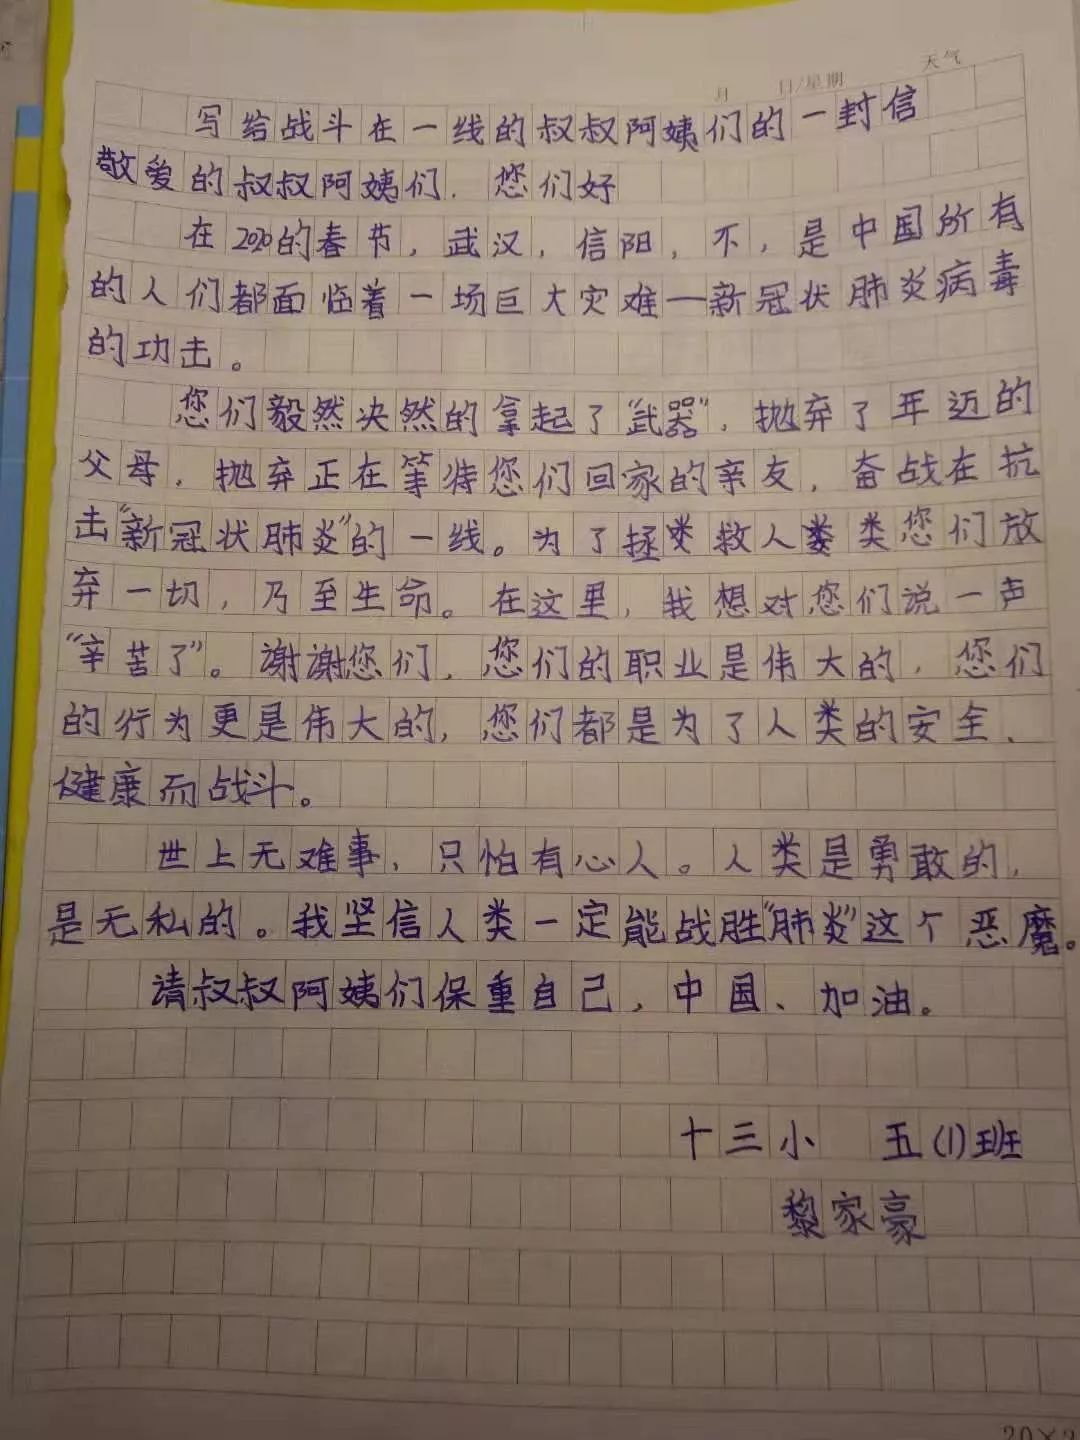 月 日/星期 天气
写给战斗在一线的叔叔阿姨们的一封信
敬爱的叔叔阿姨们，您们好
在2020的春节，武汉，信阳，不，是中国所有
的人们都面临着一场巨大灾难—新冠状肺炎病毒
的功击。
您们毅然决然的拿起了“武器”，抛弃了年迈的
父母，抛弃正在等待您们回家的亲友，奋战在抗
击“新冠状肺炎”的一线。为了拯救人类您们放
弃一切，乃至生命。在这里，我想对您们说一声
“辛苦了”。谢谢您们，您们的职业是伟大的，您们
的行为更是伟大的，您们都是为了人类的安全、
健康而战斗。
世上无难事，只怕有心人。人类是勇敢的，
是无私的。我坚信人类一定能战胜“肺炎”这个恶魔。
请叔叔阿姨们保重自己，中国、加油。
十三小 五(1)班
黎家豪